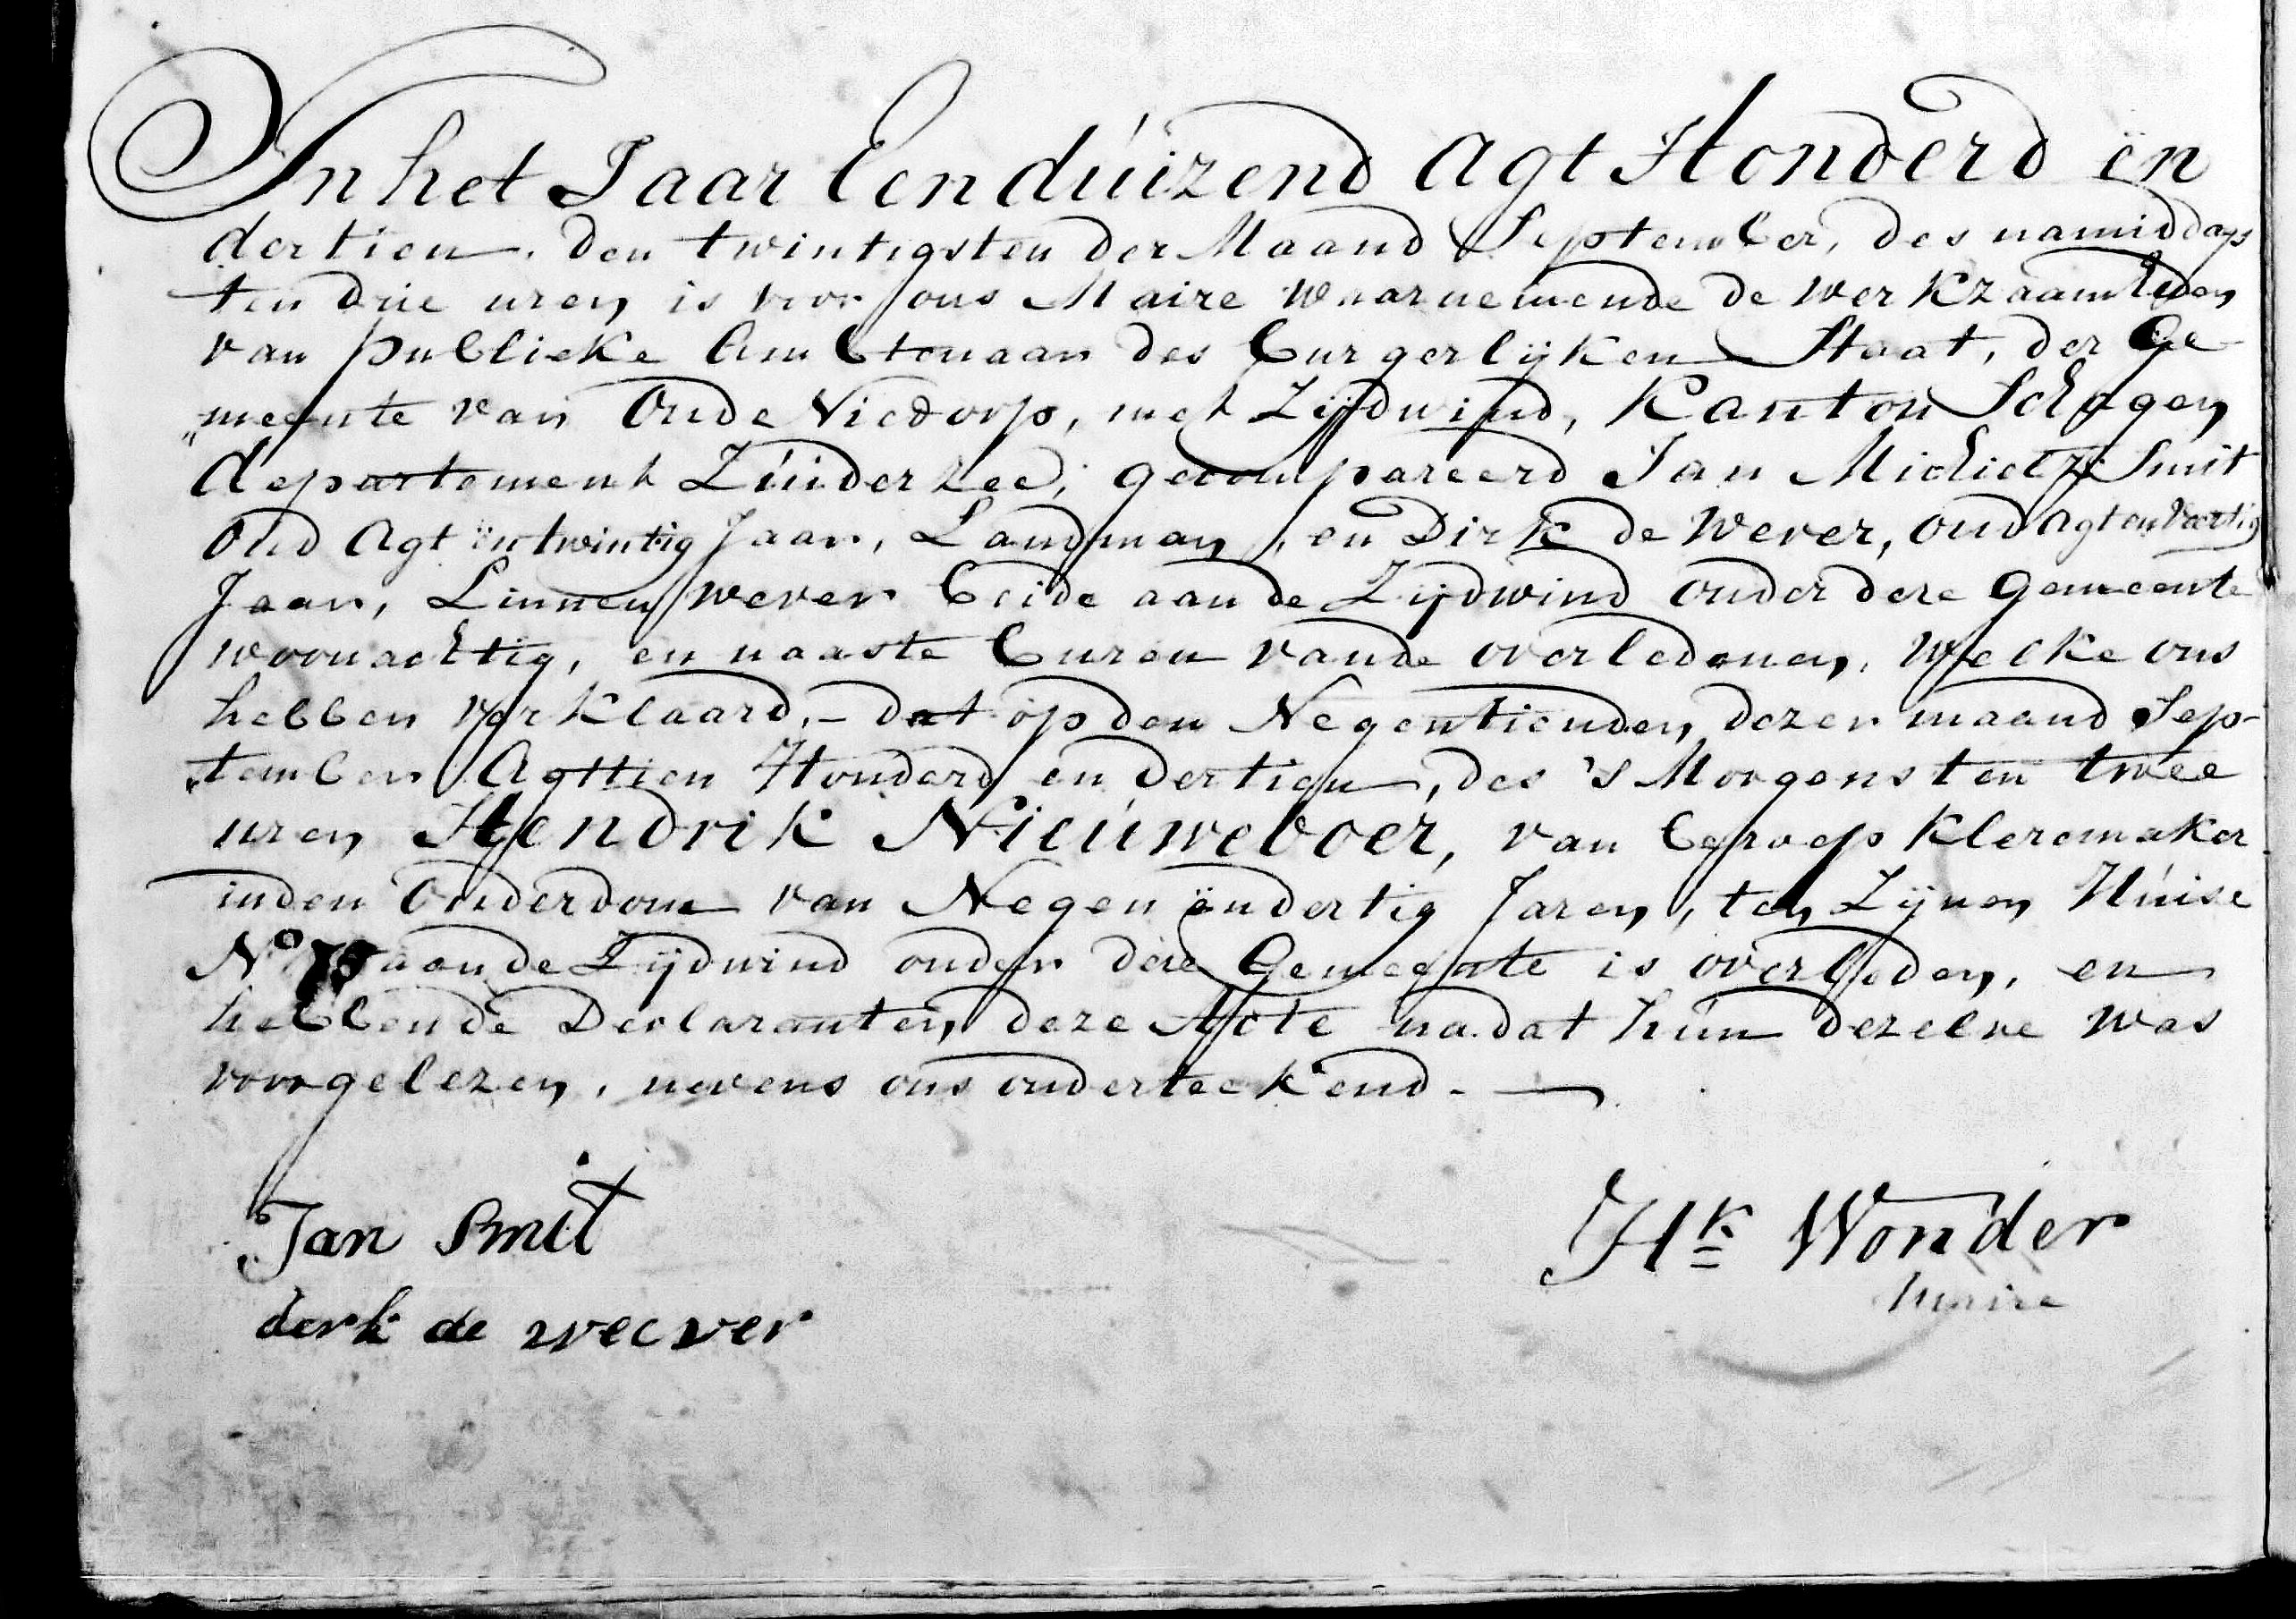 In het Jaar Eenduizend Agt Honderd ën
dertien, den twintigsten der Maand September, des namiddags
ten drie uren is voor ons Maire waarnemende de werkzaamheden
van publieke Ambtenaar des burgerlijken Staat, der Ge-
"meente van Oude Niedorp, met Zijdwind, Kanton Schagen
departement Zuiderzee, gecompareerd Jan Michielz Smit
Oud Agt ëntwintig Jaar, Landman, en Dirk de Wever, oud agt en
Jaar, Linnen wever beide aan de Zijdwind onder deze gemeente
woonachtig, en naaste buren van de overledenen, welke ons
hebben verklaard, - dat op den Negentienden dezer maand Sep-
"tember Agttien Honderd en dertien, des 's Morgens ten twee
uren Hendrik Nieuweboer, van beroep kleremaker
in den Ouderdom van Negen ëndertig Jaren, ten Zijnen Huise
No aan de Zijdwind onder deze Gemeente is overleden, en
hebben de Declaranten deze Acte na dat hun dezelve was
voorgelezen, nevens ons onderteekend. —
Jan Smit
Hk Wonder
maire
derk de wecver